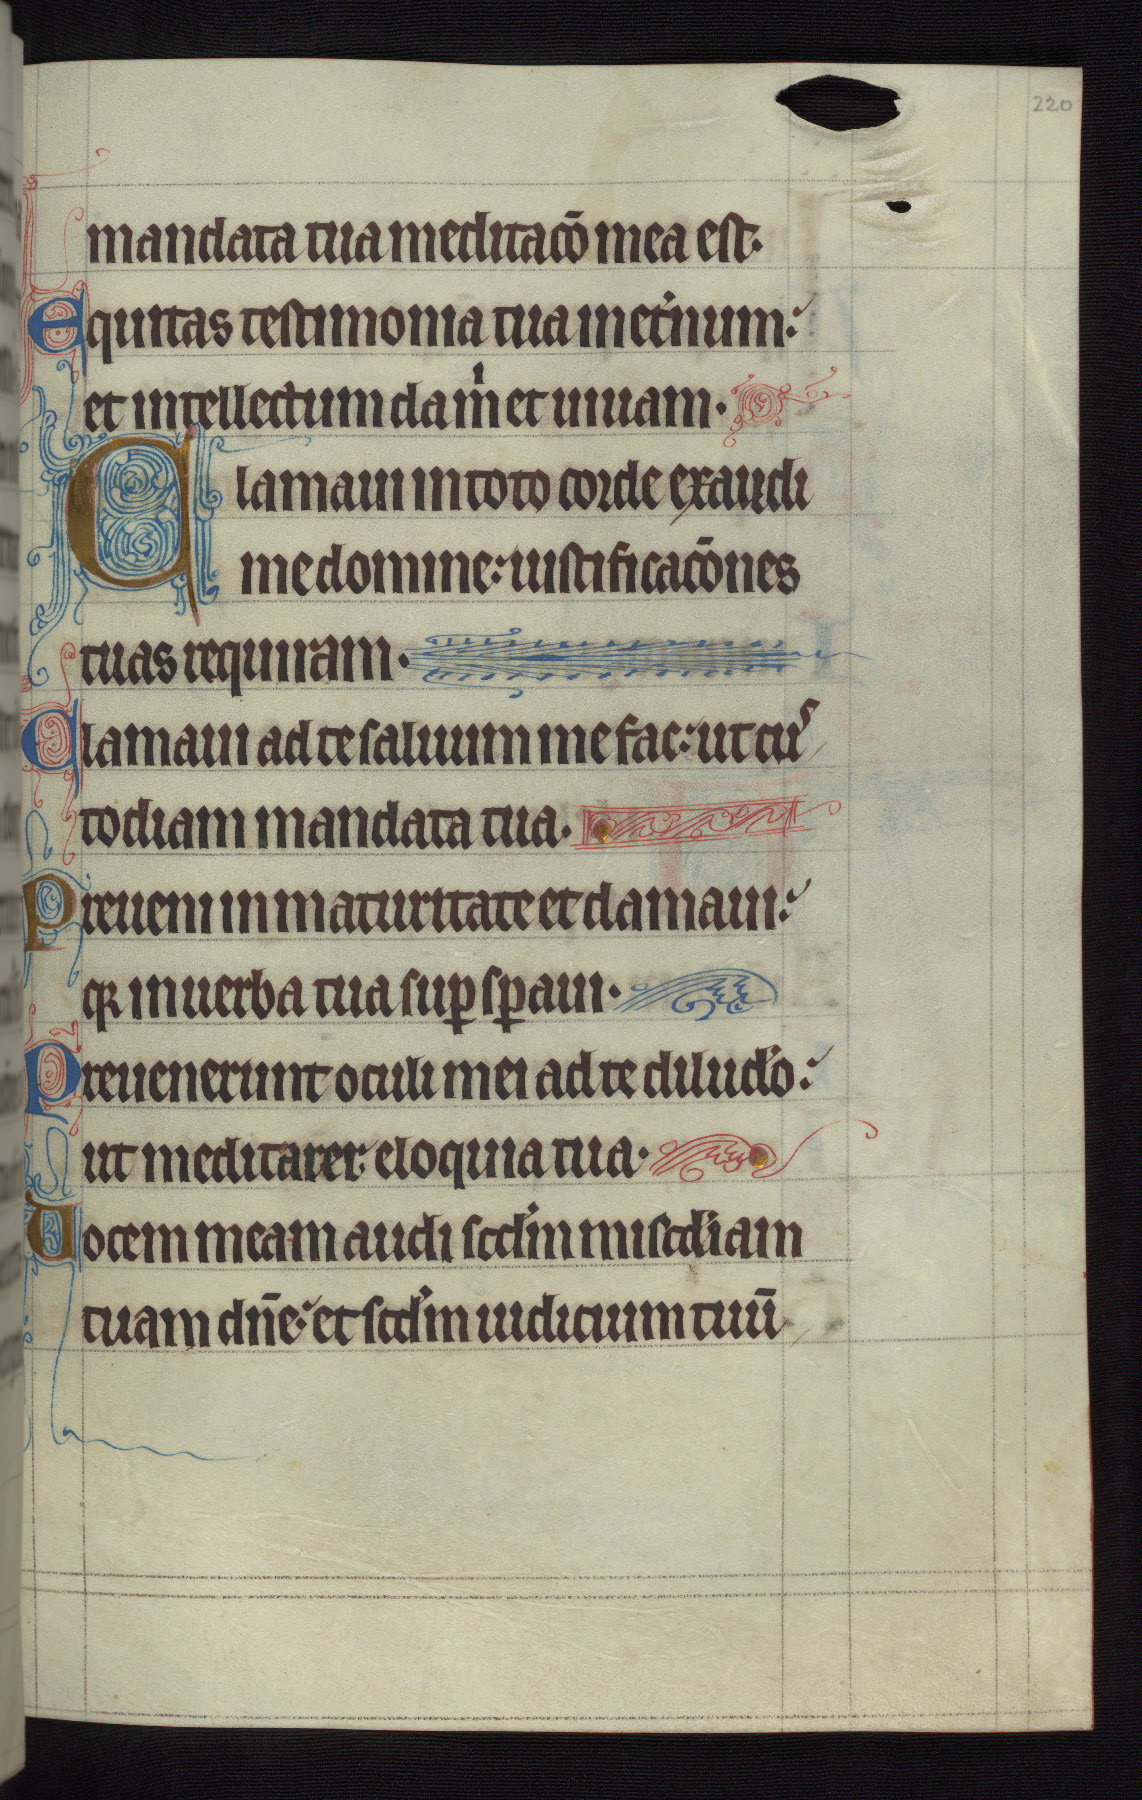 220
mandata tua meditacō mea est.
Equitas testimonia tua in et'num:
et intellectum da m̍ et uiuam.
Clamaui in toto corde exaudi
me domine: iustificacōnes
tuas requiram.
Clamaui ad te saluum me fac: ut cus
todiam mandata tua.
Preueni in maturitate et clamaui:
qꝛ in uerba tua suꝑ sꝑaui.
Preuenerunt oculi mei ad te diluc̍lo:
ut meditarer eloquia tua.
Uocem meam audi scd̍m misc̍diam
tuam dn̄e: et scd̍m iudicium tuū